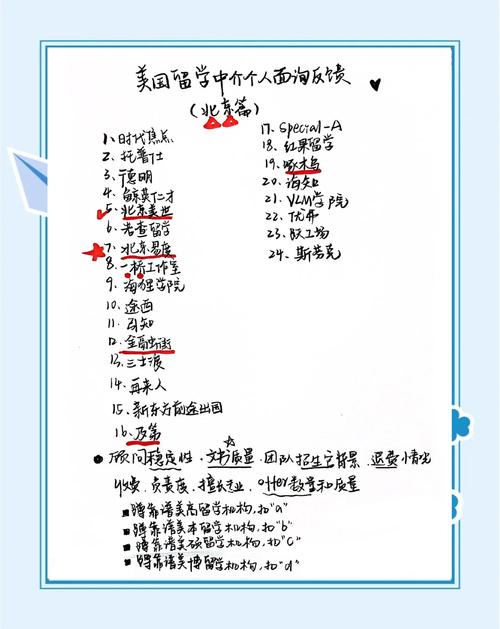 美国留学中介个人面询反馈
(北京篇)
1、时代焦点
2、托普仕
3、德明
4、自稼英仁才
5、北京美世
6、岩查留学
7、北京易度
8、一桥工作室
9、海狸学院
10、途西
11、马知
12、金融街
13、三士渡
14、再来人
15、新东方前途出国
16、及第
17、Special-A
18、红果留学
19、啄木鸟
20、海知
21、VLM学院
22、优弗
23、跃工场
24、斯芬克
顾问稳定性、文书质量、团队招生官背景、退费情况
收费、负责度、擅长专业、offer数量和质量
蹲靠谱美高留学机构,扣"a"
蹲靠谱美本留学机构,扣"b"
蹲靠谱美硕留学机构,扣"c"
蹲靠谱美博留学机构,扣"d"